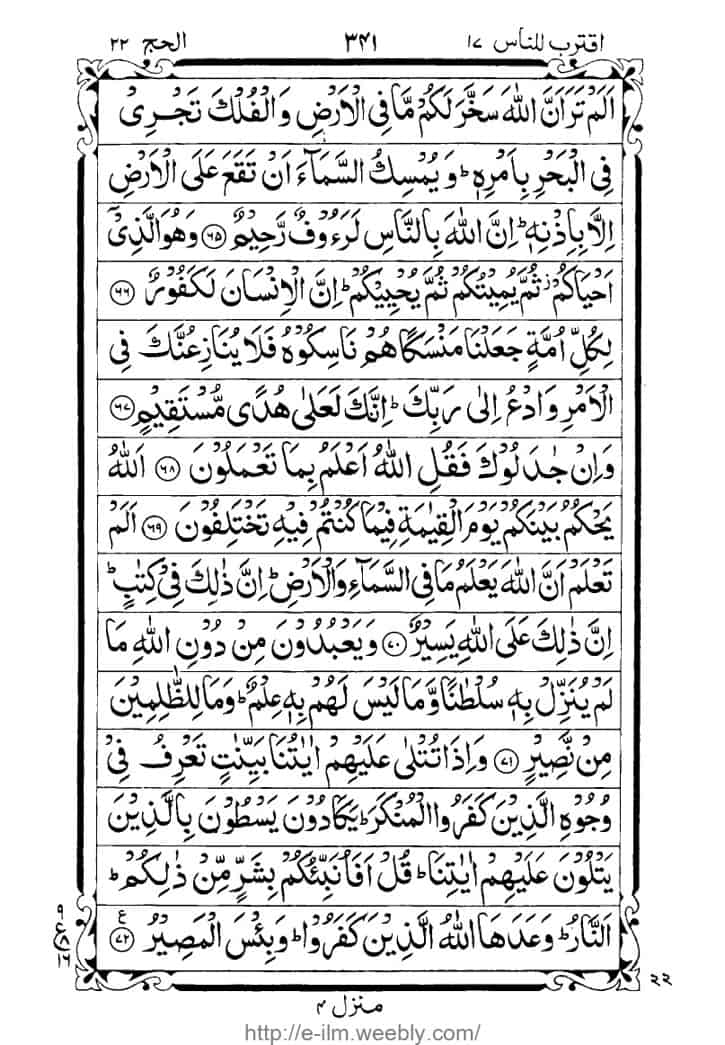 اقترب للناس ۱۷ ۳۴۱ الحج ۲۲
اَلَمْ تَرَ اَنَّ اللّٰهَ سَخَّرَ لَكُمْ مَّا فِی الْاَرْضِ وَ الْفُلْكَ تَجْرِیْ
فِی الْبَحْرِ بِاَمْرِهٖ ؕ وَ یُمْسِكُ السَّمَآءَ اَنْ تَقَعَ عَلَی الْاَرْضِ
اِلَّا بِاِذْنِهٖ ؕ اِنَّ اللّٰهَ بِالنَّاسِ لَرَءُوْفٌ رَّحِیْمٌ ﴿۶۵﴾ وَ هُوَ الَّذِیْۤ
اَحْیَاكُمْ ؗ ثُمَّ یُمِیْتُكُمْ ثُمَّ یُحْیِیْكُمْ ؕ اِنَّ الْاِنْسَانَ لَكَفُوْرٌ ﴿۶۶﴾
لِكُلِّ اُمَّةٍ جَعَلْنَا مَنْسَكًا هُمْ نَاسِكُوْهُ فَلَا یُنَازِعُنَّكَ فِی
الْاَمْرِ وَ ادْعُ اِلٰی رَبِّكَ ؕ اِنَّكَ لَعَلٰی هُدًی مُّسْتَقِیْمٍ ﴿۶۷﴾
وَ اِنْ جٰدَلُوْكَ فَقُلِ اللّٰهُ اَعْلَمُ بِمَا تَعْمَلُوْنَ ﴿۶۸﴾ اَللّٰهُ
یَحْكُمُ بَیْنَكُمْ یَوْمَ الْقِیٰمَةِ فِیْمَا كُنْتُمْ فِیْهِ تَخْتَلِفُوْنَ ﴿۶۹﴾ اَلَمْ
تَعْلَمْ اَنَّ اللّٰهَ یَعْلَمُ مَا فِی السَّمَآءِ وَ الْاَرْضِ ؕ اِنَّ ذٰلِكَ فِیْ كِتٰبٍ ؕ
اِنَّ ذٰلِكَ عَلَی اللّٰهِ یَسِیْرٌ ﴿۷۰﴾ وَ یَعْبُدُوْنَ مِنْ دُوْنِ اللّٰهِ مَا
لَمْ یُنَزِّلْ بِهٖ سُلْطٰنًا وَّ مَا لَیْسَ لَهُمْ بِهٖ عِلْمٌ ؕ وَ مَا لِلظّٰلِمِیْنَ
مِنْ نَّصِیْرٍ ﴿۷۱﴾ وَ اِذَا تُتْلٰی عَلَیْهِمْ اٰیٰتُنَا بَیِّنٰتٍ تَعْرِفُ فِیْ
وُجُوْهِ الَّذِیْنَ كَفَرُوا الْمُنْكَرَ ؕ یَكَادُوْنَ یَسْطُوْنَ بِالَّذِیْنَ
یَتْلُوْنَ عَلَیْهِمْ اٰیٰتِنَا ؕ قُلْ اَفَاُنَبِّئُكُمْ بِشَرٍّ مِّنْ ذٰلِكُمْ ؕ
اَلنَّارُ ؕ وَعَدَهَا اللّٰهُ الَّذِیْنَ كَفَرُوْا ؕ وَ بِئْسَ الْمَصِیْرُ ﴿۷۲﴾ ع
۹
ع ۸
۱۶
۲۲
منزل ۴
http://e-ilm.weebly.com/